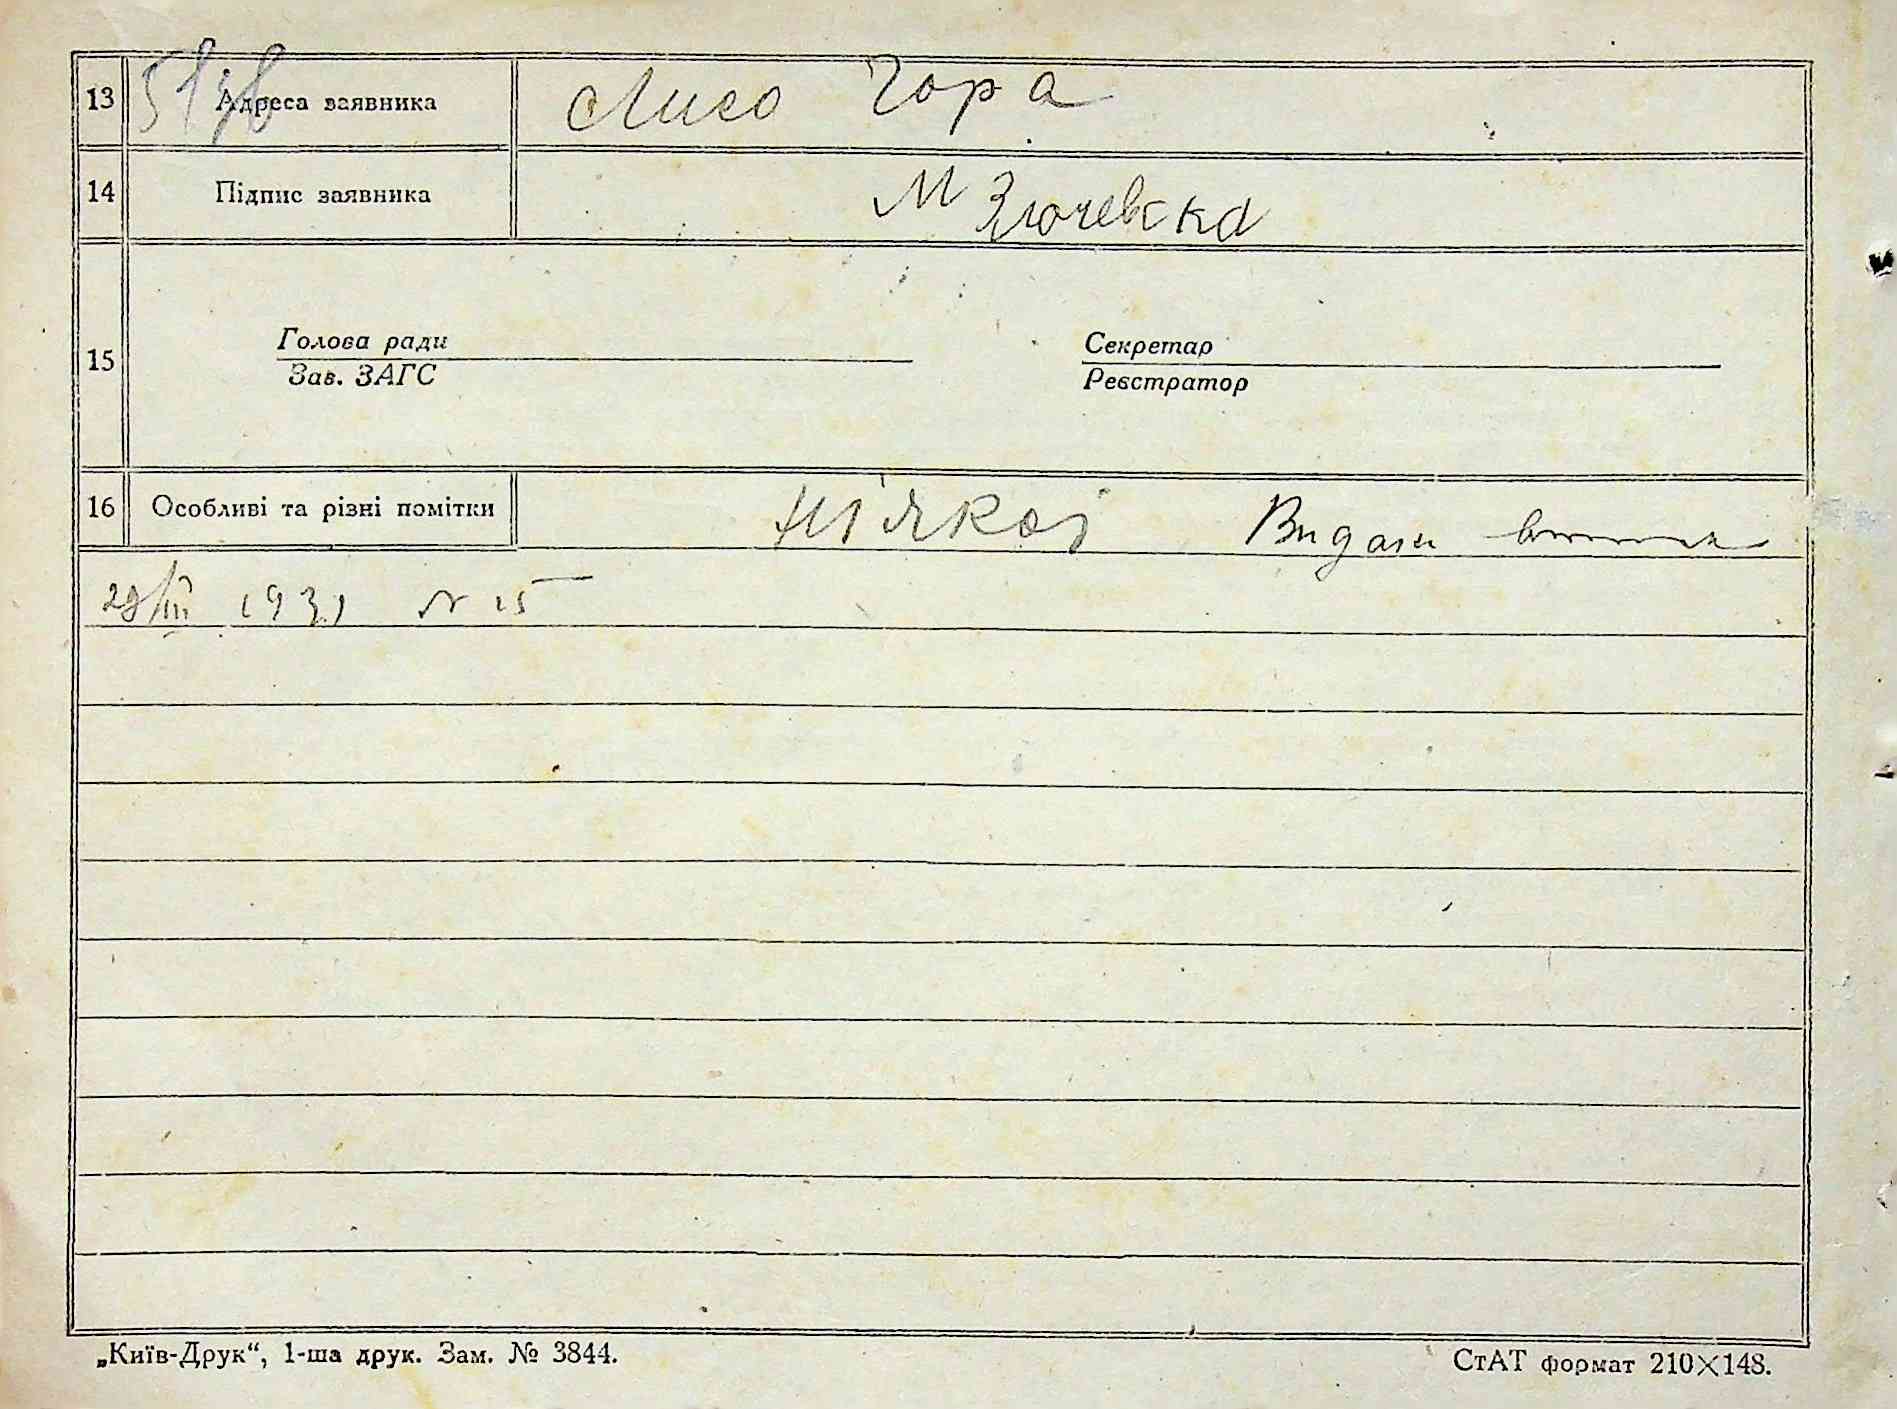 13 Адреса заявника Лисо Гора
14 Підпис заявника М Злочевска
15
Голова ради Секретар
Зав. ЗАГС Реєстратор
16 Особливі та різні помітки ніякої Видали
28/III 1931 N 15
„Київ-Друк“, 1-ша друк. Зам. № 3844. СтАТ формат 210×148.